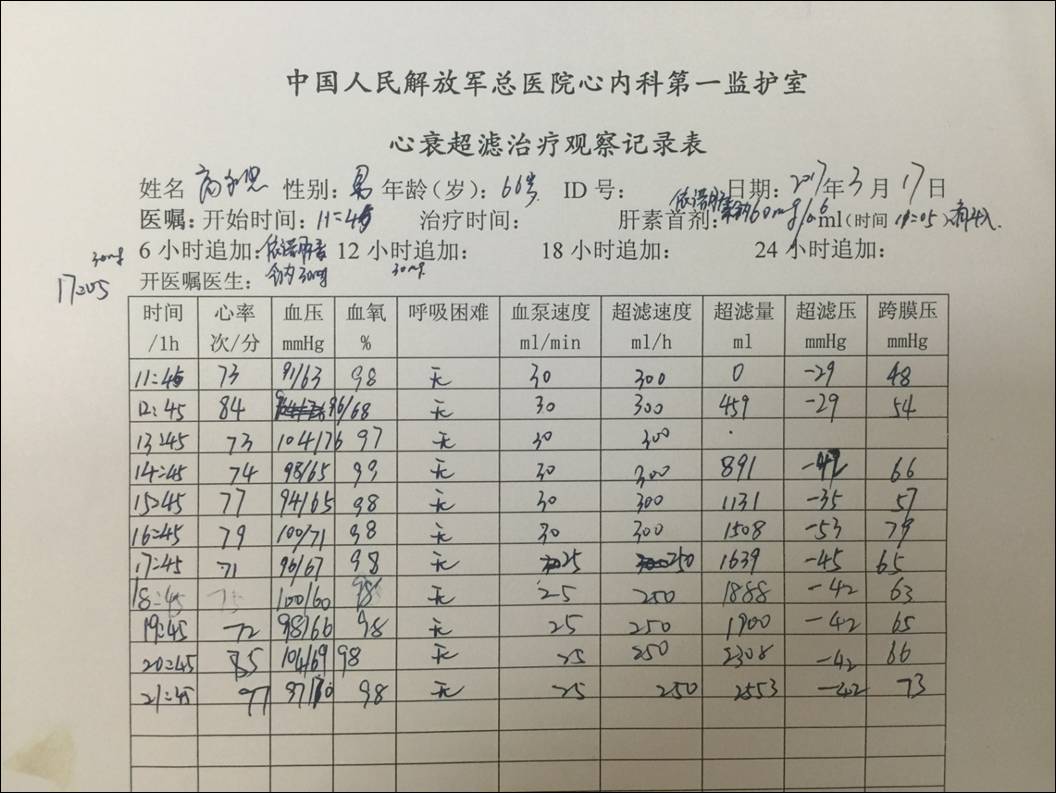 中国人民解放军总医院心内科第一监护室
心衰超滤治疗观察记录表
姓名 性别: 男 年龄(岁): 66岁 ID 号: 日期: 2017年3月17日
医嘱: 开始时间: 11:45 治疗时间: 肝素首剂: 依诺肝素钠60mg/0.6ml(时间 11:05)
6 小时追加: 依诺肝素钠30mg 12 小时追加: 30mg 18 小时追加: 24 小时追加:
30mg
17:05 开医嘱医生:
时间/1h 心率次/分 血压mmHg 血氧% 呼吸困难 血泵速度ml/min 超滤速度ml/h 超滤量ml 超滤压mmHg 跨膜压mmHg
11:45 73 91/63 98 无 30 300 0 -29 48
12:45 84 96/68 98 无 30 300 459 -29 54
13:45 73 104/76 97 无 30 300
14:45 74 98/65 99 无 30 300 891 66
15:45 77 94/65 98 无 30 300 1131 -35 57
16:45 79 100/71 98 无 30 300 1508 -53 79
17:45 71 96/67 98 无 25 250 1639 -45 65
18:45 75 100/60 98 无 25 250 1888 -42 63
19:45 72 98/66 98 无 25 250 1900 -42 65
20:45 85 104/69 98 无 25 250 2308 -42 66
21:45 77 98 无 25 250 2553 -42 73